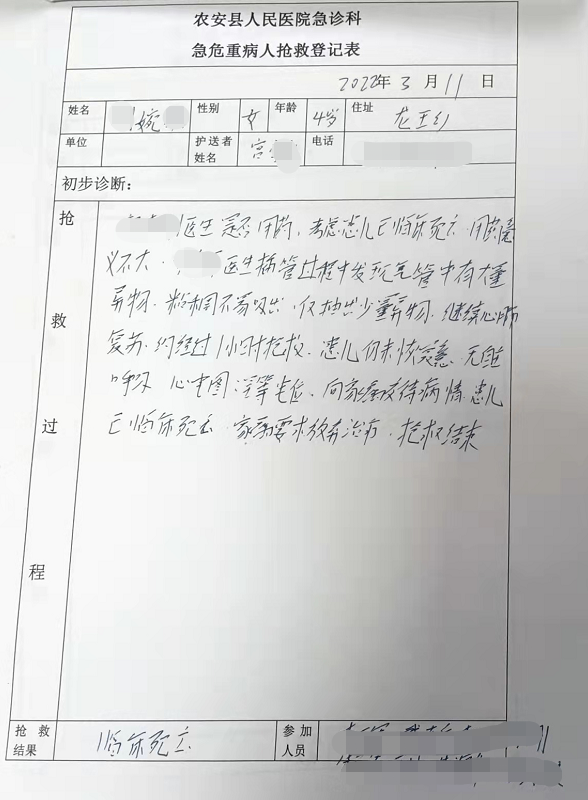 农安县人民医院急诊科
急危重病人抢救登记表
2022年3月11日
姓名 婉 性别 女 年龄 4岁 住址 龙王乡
单位 护送者姓名 宫 电话
初步诊断：
抢救过程
医生是否用药，考虑患儿已临床死亡，用药意
义不大。医生插管过程中发现气管中有大量
异物，粘稠不易吸出，仅抽出少量异物，继续心肺
复苏，约经过1小时抢救，患儿仍未恢复意，无自
呼吸，心电图：等电位，向家属交待病情患儿
已临床死亡，家属要求放弃治疗，抢救结束
抢救结果 临床死亡 参加人员